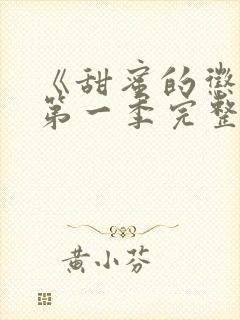 《甜蜜的懲
第一季完整
黄小芬